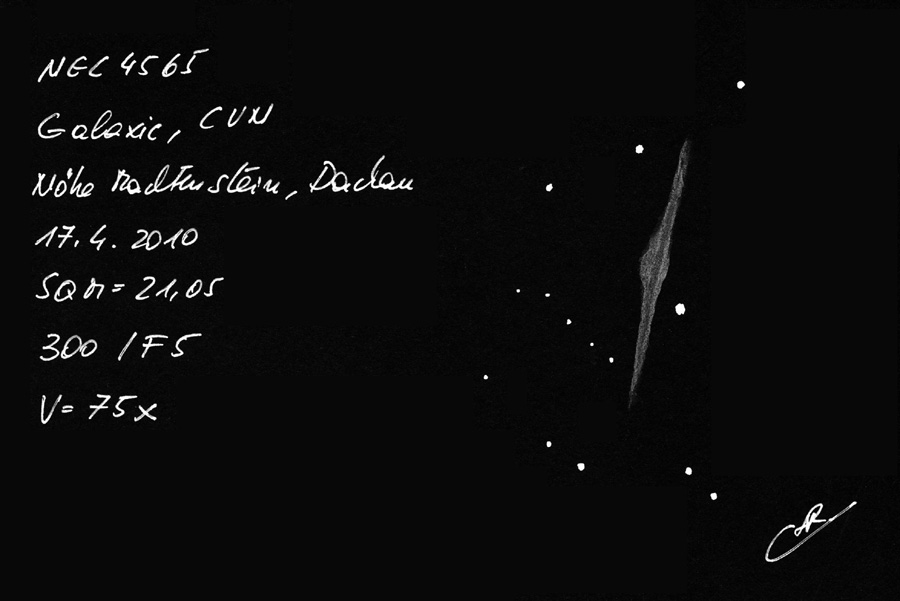 NGC 4565
Galaxie, CVN
Nähe, Dachau
17.4.2010
SQM = 21,05
300 / F5
V = 75x